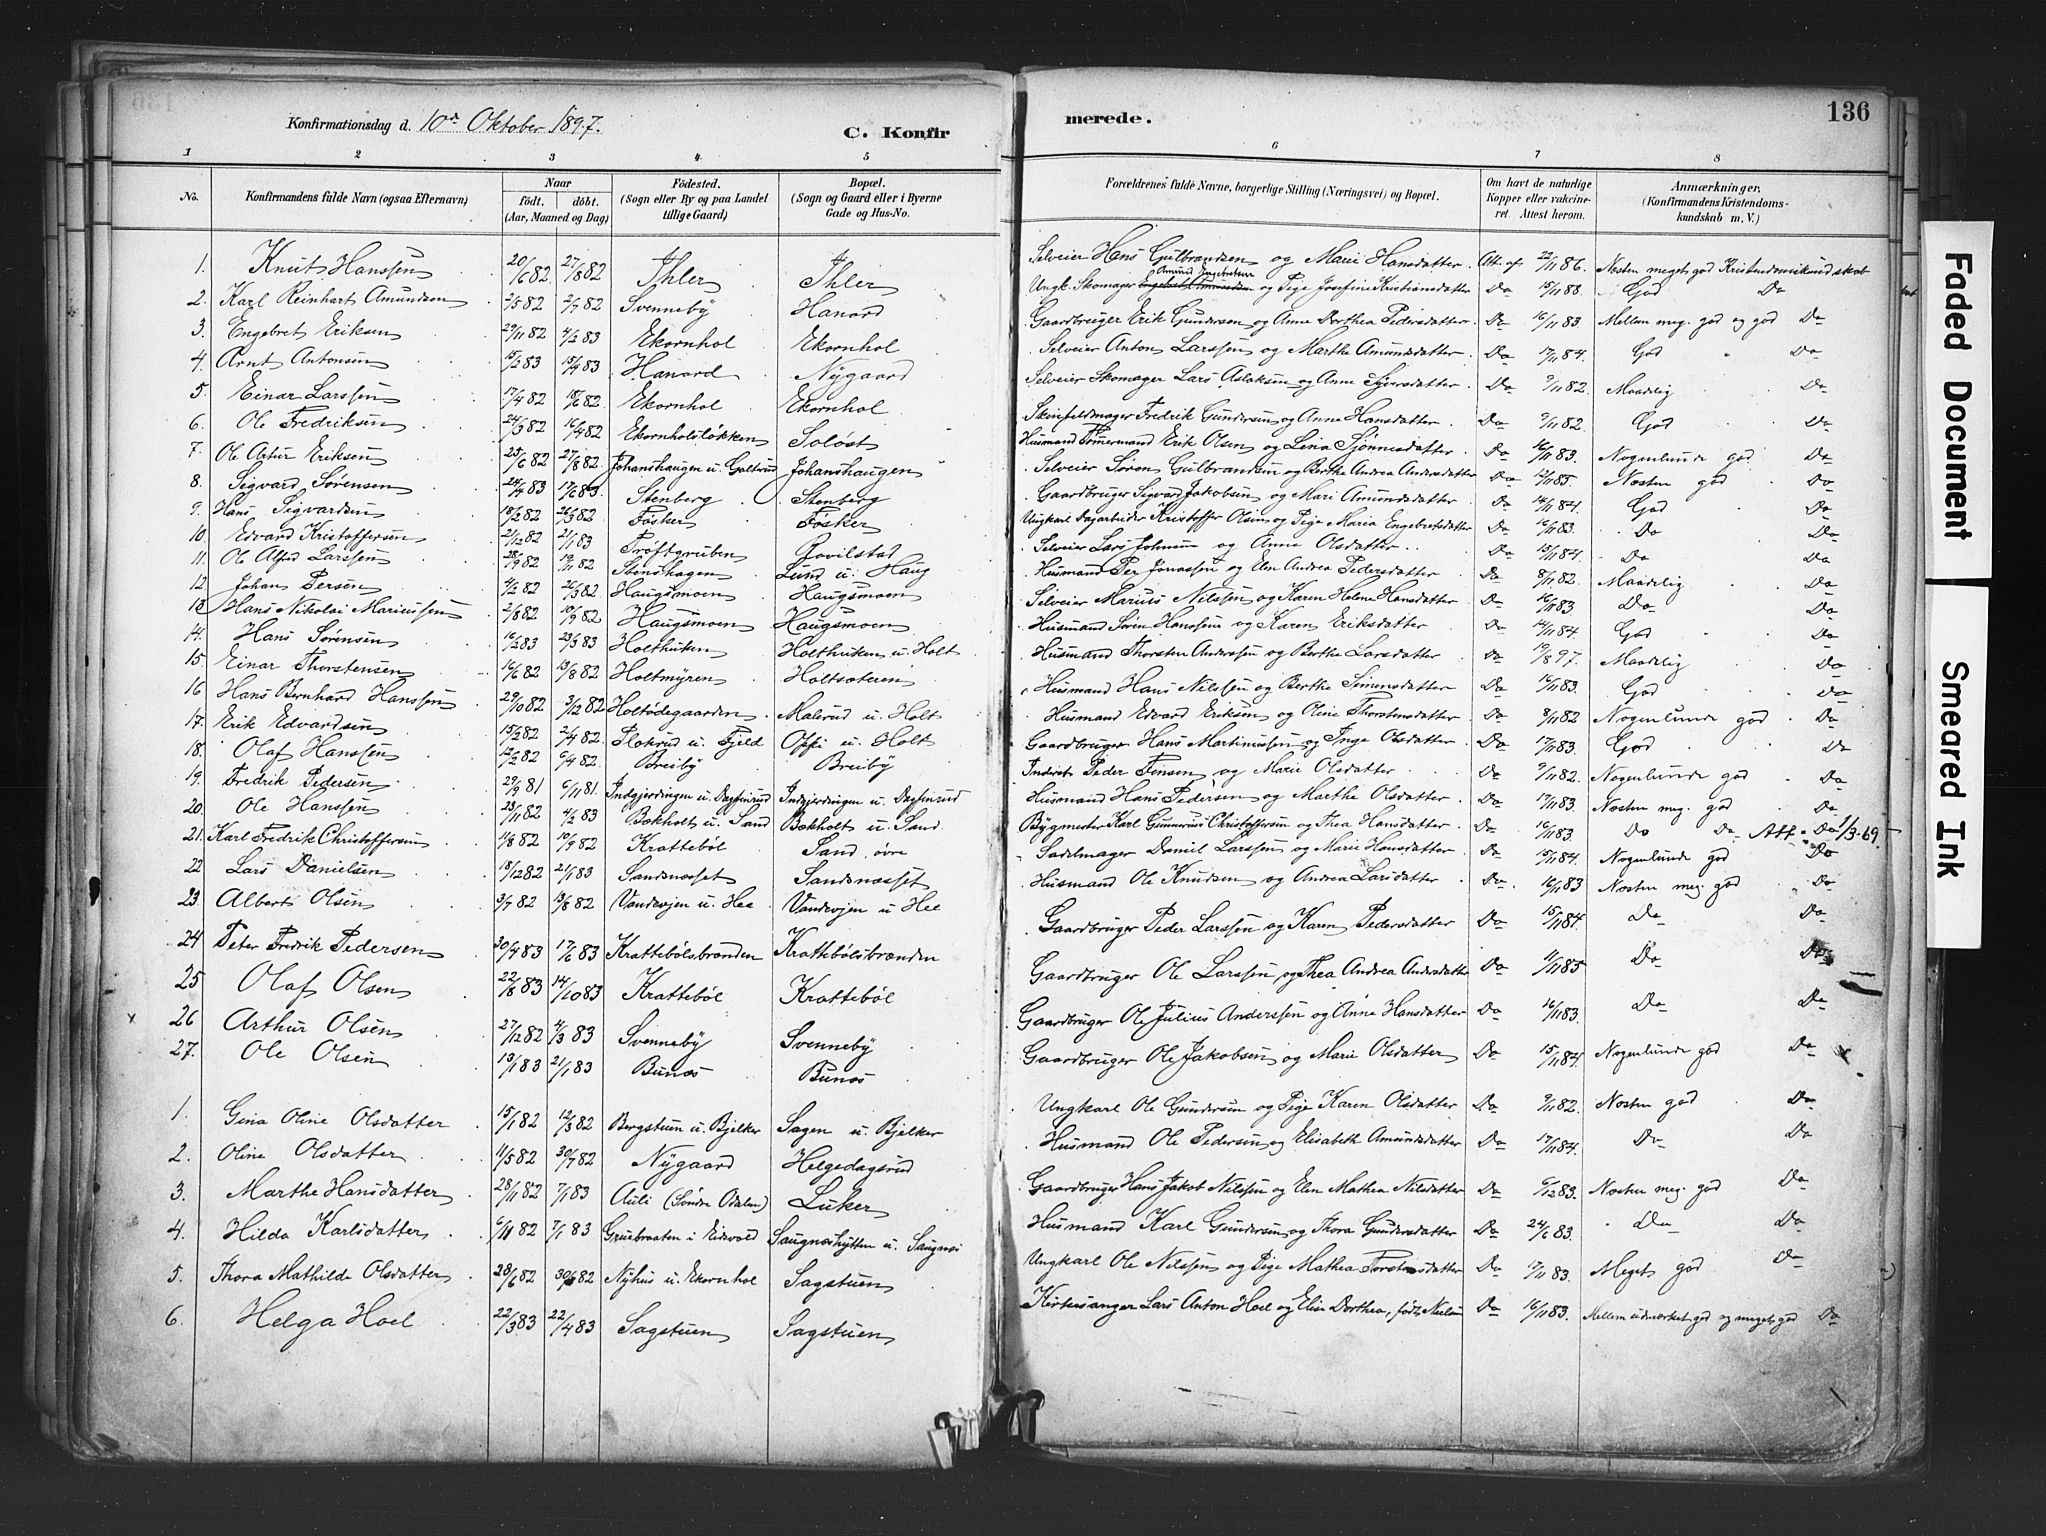 136
Konfirmationsdag d. 10de Oktober 1897.
C. Konfir
merede.
1 2 3 4 5 6 7 8
No.
Konfirmandens fulde Navn (ogsaa Efternavn)
Naar
født. døbt.
(Aar, Maaned og Dag)
Fødested.
(Sogn eller By og paa Landet
tillige Gaard)
Bopæl.
(Sogn og Gaard eller i Byerne
Gade og Hus-No.
Forældrenes fulde Navne, borgerlige Stilling (Næringsvei) og Bopæl.
Om havt de naturlige
Kopper eller vakcine-
ret. Attest herom.
Anmærkninger.
(Konfirmandens Kristendoms-
kundskab m. V.)
1. Knut Hanssen 20/6 82 27/8 82 Ihler Ihler Selveier Hans Gulbrandsen og Marie Hansdatter Att. af 22/11 86. Næsten meget god Kristendomskundskab
2. Karl Reinhart Amundsen 2/5 82 2/7 82 Svenneby Hanord Ungk. Skomager Amund Engebretsen og Pige Josefine Kristiansdatter Do 15/11 88. God Do
3. Engebret Eriksen 29/11 82 4/2 83 Ekornhol Ekornhol Gaardbruger Erik Gundersen og Anne Dorthea Pedersdatter Do 16/11 83. Mellem meg. god og god Do
4. Arnt Antonsen 15/2 83 15/4 83 Hanord Nygaard Selveier Anton Larssen og Marthe Amundsdatter Do 17/11 84. God Do
5. Einar Larssen 17/4 82 18/6 82 Ekornhol Ekornhol Selveier Skomager Lars Aslaksen og Anne Syversdatter Do 9/11 82. Maadelig Do
6. Ole Fredriksen 24/3 82 16/4 82 Ekornholsløkken Soløst Skinfeldmager Fredrik Gundersen og Anne Hansdatter Do 9/11 82. God Do
7. Ole Artur Eriksen 25/6 82 27/8 82 Johanshaugen u. Galterud Johanshaugen Husmand Tømermand Erik Olsen og Lina Sjønnesdatter Do 16/11 83. Nogenlunde god Do
8. Sigvard Sørensen 24/4 83 17/6 83 Stenberg Stenberg Selveier Søren Gulbrandsen og Berthe Andrea Andersdatter Do 12/11 85. Næsten god Do
9. Hans Sigvardsen 18/2 82 26/3 82 Fosker Fosker Gaardbruger Sigvard Jakobsen og Mari Amundsdatter Do 14/11 84. God Do
10. Edvard Kristoffersen 21/12 82 21/1 83 Trøftgruben Rovilstad Ungkarl Dagarbeider Kristoffer Olsen og Pige Maria Engebretsdatter Do 16/11 83. Do Do
11. Ole Alfred Larssen 28/9 82 19/11 82 Stenshagen Lund u. Haug Selveier Lars Johnsen og Anne Olsdatter Do 15/11 84. Do Do
12. Johan Persen 4/2 82 26/3 82 Haugsmoen Haugsmoen Husmand Per Jonassen og Elen Andrea Pedersdatter Do 8/11 82. Maadelig Do
13. Hans Nikolai Mariussen 2/8 82 10/9 82 Haugsmoen Haugsmoen Selveier Marius Nilssen og Karen Helene Hansdatter Do 16/11 83 Do Do
14. Hans Sørensen 16/2 83 23/3 83 Holthviken Holthviken u. Holt Husmand Søren Hanssen og Karen Eriksdatter Do 14/11 84. God Do
15. Einar Thorstensen 16/6 82 13/8 82 Holtmyren Holtsæteren Husmand Thorsten Andersen og Berthe Larsdatter Do 19/8 97. Maadelig Do
16 Hans Bernhard Hanssen 29/10 82 3/12 82 Holtødegaarden Malerud u. Holt Husmand Hans Nilssen og Berthe Simensdatter Do 16/11 83. God Do
17. Erik Edvardsen 15/2 82 2/4 82 Flokrud u. Fjeld Oppi u. Holt Husmand Edvard Eriksen og Oline Thorstensdatter Do 8/11 82 Nogenlunde god Do
18. Olaf Hanssen 12/2 82 6/4 82. Breiby Breiby Gaardbruger Hans Martinussen og Inge Olsdatter Do 17/11 83. God Do
19. Fredrik Pedersen 29/9 81 6/11 81. Indgjerdingen u. Dagfinrud Indgjerdingen u. Dagfinrud Inderst Peder Finsen og Marie Olsdatter Do 9/11 82. Nogenlunde god Do
20. Ole Hanssen 23/11 82 4/2 83 Bokholt u. Sand Bokholt u. Sand Husmand Hans Pedersen og Marthe Olsdatter Do 17/11 83. Næsten meg. god Do
21. Karl Fredrik Christoffersen 11/8 82 10/9 82 Krattebøl Sand, øvre Bygmester Karl Gunnerius Christoffersen og Thea Hansdatter Do 16/11 83. Do Do Att. Do 1/3-69.
22 Lars Danielsen 18/12 82 21/1 83 Sandsnæsset Sandsnæsset Sadelmager Daniel Larssen og Marie Hansdatter Do 15/11 84. Nogenlunde god Do
23. Albert Olsen 3/7 82 13/8 82 Vandvejen u. Hee Vandvejen u Hee Husmand Ole Knudsen og Andrea Larsdatter Do 16/11 83 Næsten meg. god Do
24 Peter Fredrik Pedersen 30/4 83 17/6 83 Krattebølsbraaten Krattebølsbraaten Gaardbruger Peder Larssen og Karen Pedersdatter Do 15/11 84. Do Do
25 Olaf Olsen 22/8 83 14/10 83 Krattebøl Krattebøl Gaardbruger Ole Larssen og Thea Andrea Andersdatter Do 11/11 85 Do Do
26 Arthur Olsen 27/12 82 4/3 83 Svenneby Svenneby Gaardbruger Ole Julius Anderssen og Anne Hansdatter Do 16/11 83. Do Do
27. Ole Olsen 13/1 83 21/1 83 Bunæs Bunæs Gaardbruger Ole Jakobsen og Marie Olsdatter Do 15/11 84. Nogenlunde god Do
1. Gina Oline Olsdatter 15/1 82 12/3 82 Bergstuen u. Bjelker Sagen u. Bjelker Ungkarl Ole Gundersen og Pige Karen Olsdatter Do 9/11 82. Næsten god Do
2. Oline Olsdatter 11/5 82 30/7 82 Nygaard Helgedagsrud Husmand Ole Pedersen og Elisabeth Amundsdatter Do 17/11 84. Do Do
3. Marthe Hansdatter 28/11 82 7/1 83 Auli (Søndre Odalen) Luker Gaardbruger Hans Jakob Nilssen og Elen Mathea Nilsdatter Do 6/12 83. Næsten meg. god Do
4 Hilda Karlsdatter 6/11 82 7/1 83 Gruebraaten i Eidsvold Saugnæshytten u. Saugnæs Husmand Karl Gundersen og Thora Gundersdatter Do 24/6 83. Do Do
5. Thora Mathilde Olsdatter 28/6 82 30/ 82 Nyhus u. Ekornhol Sagstuen Ungkarl Ole Nilssen og Pige Mathea Torstensdatter Do 17/11 83. Meget god Do
6. Helga Hoel 22/3 83 22/4 83 Sagstuen Sagstuen Kirkesanger Lars Anton Hoel og Elise Dorthea, født Nielsen Do 16/11 83. Mellem udmærket god og meget god Do
Faded Document
Smeared Ink